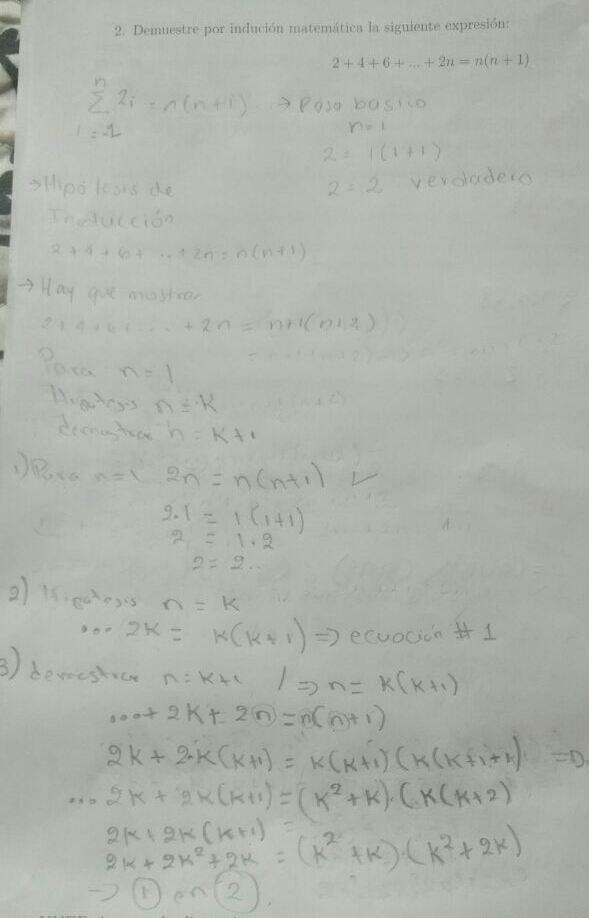 2. Demuestre por indución matemática la siguiente expresión:
2 + 4 + 6 + ... + 2n = n(n + 1)
n
∑ 2i = n(n+1) → Paso basico
i = 1
n=1
2 = 1(1+1)
2 = 2 verdadero
→ Hipótesis de
Inducción
2+4+6+ ... +2n = n(n+1)
→ Hay que mostrar
2+4+6+ ... +2n = n+1(n+2)
Para n=1
Hipotesis n=K
demostrar n=K+1
1) Para n=1 2n = n(n+1) ✓
2.1 = 1(1+1)
2 = 1.2
2 = 2
2) Hipotesis n = K
... 2K = K(K+1) ⇒ ecuación # 1
3) demostrar n=K+1 / ⇒ n = K(K+1)
...+ 2K + 2n = n(n+1)
2K + 2.K(K+1) = K(K+1)(K(K+1+1)
... 2K + 2K(K+1) = (K²+K).(K(K+2)
2K + 2K(K+1)
2K + 2K² + 2K = (K²+K).(K²+2K)
→ ① en ②